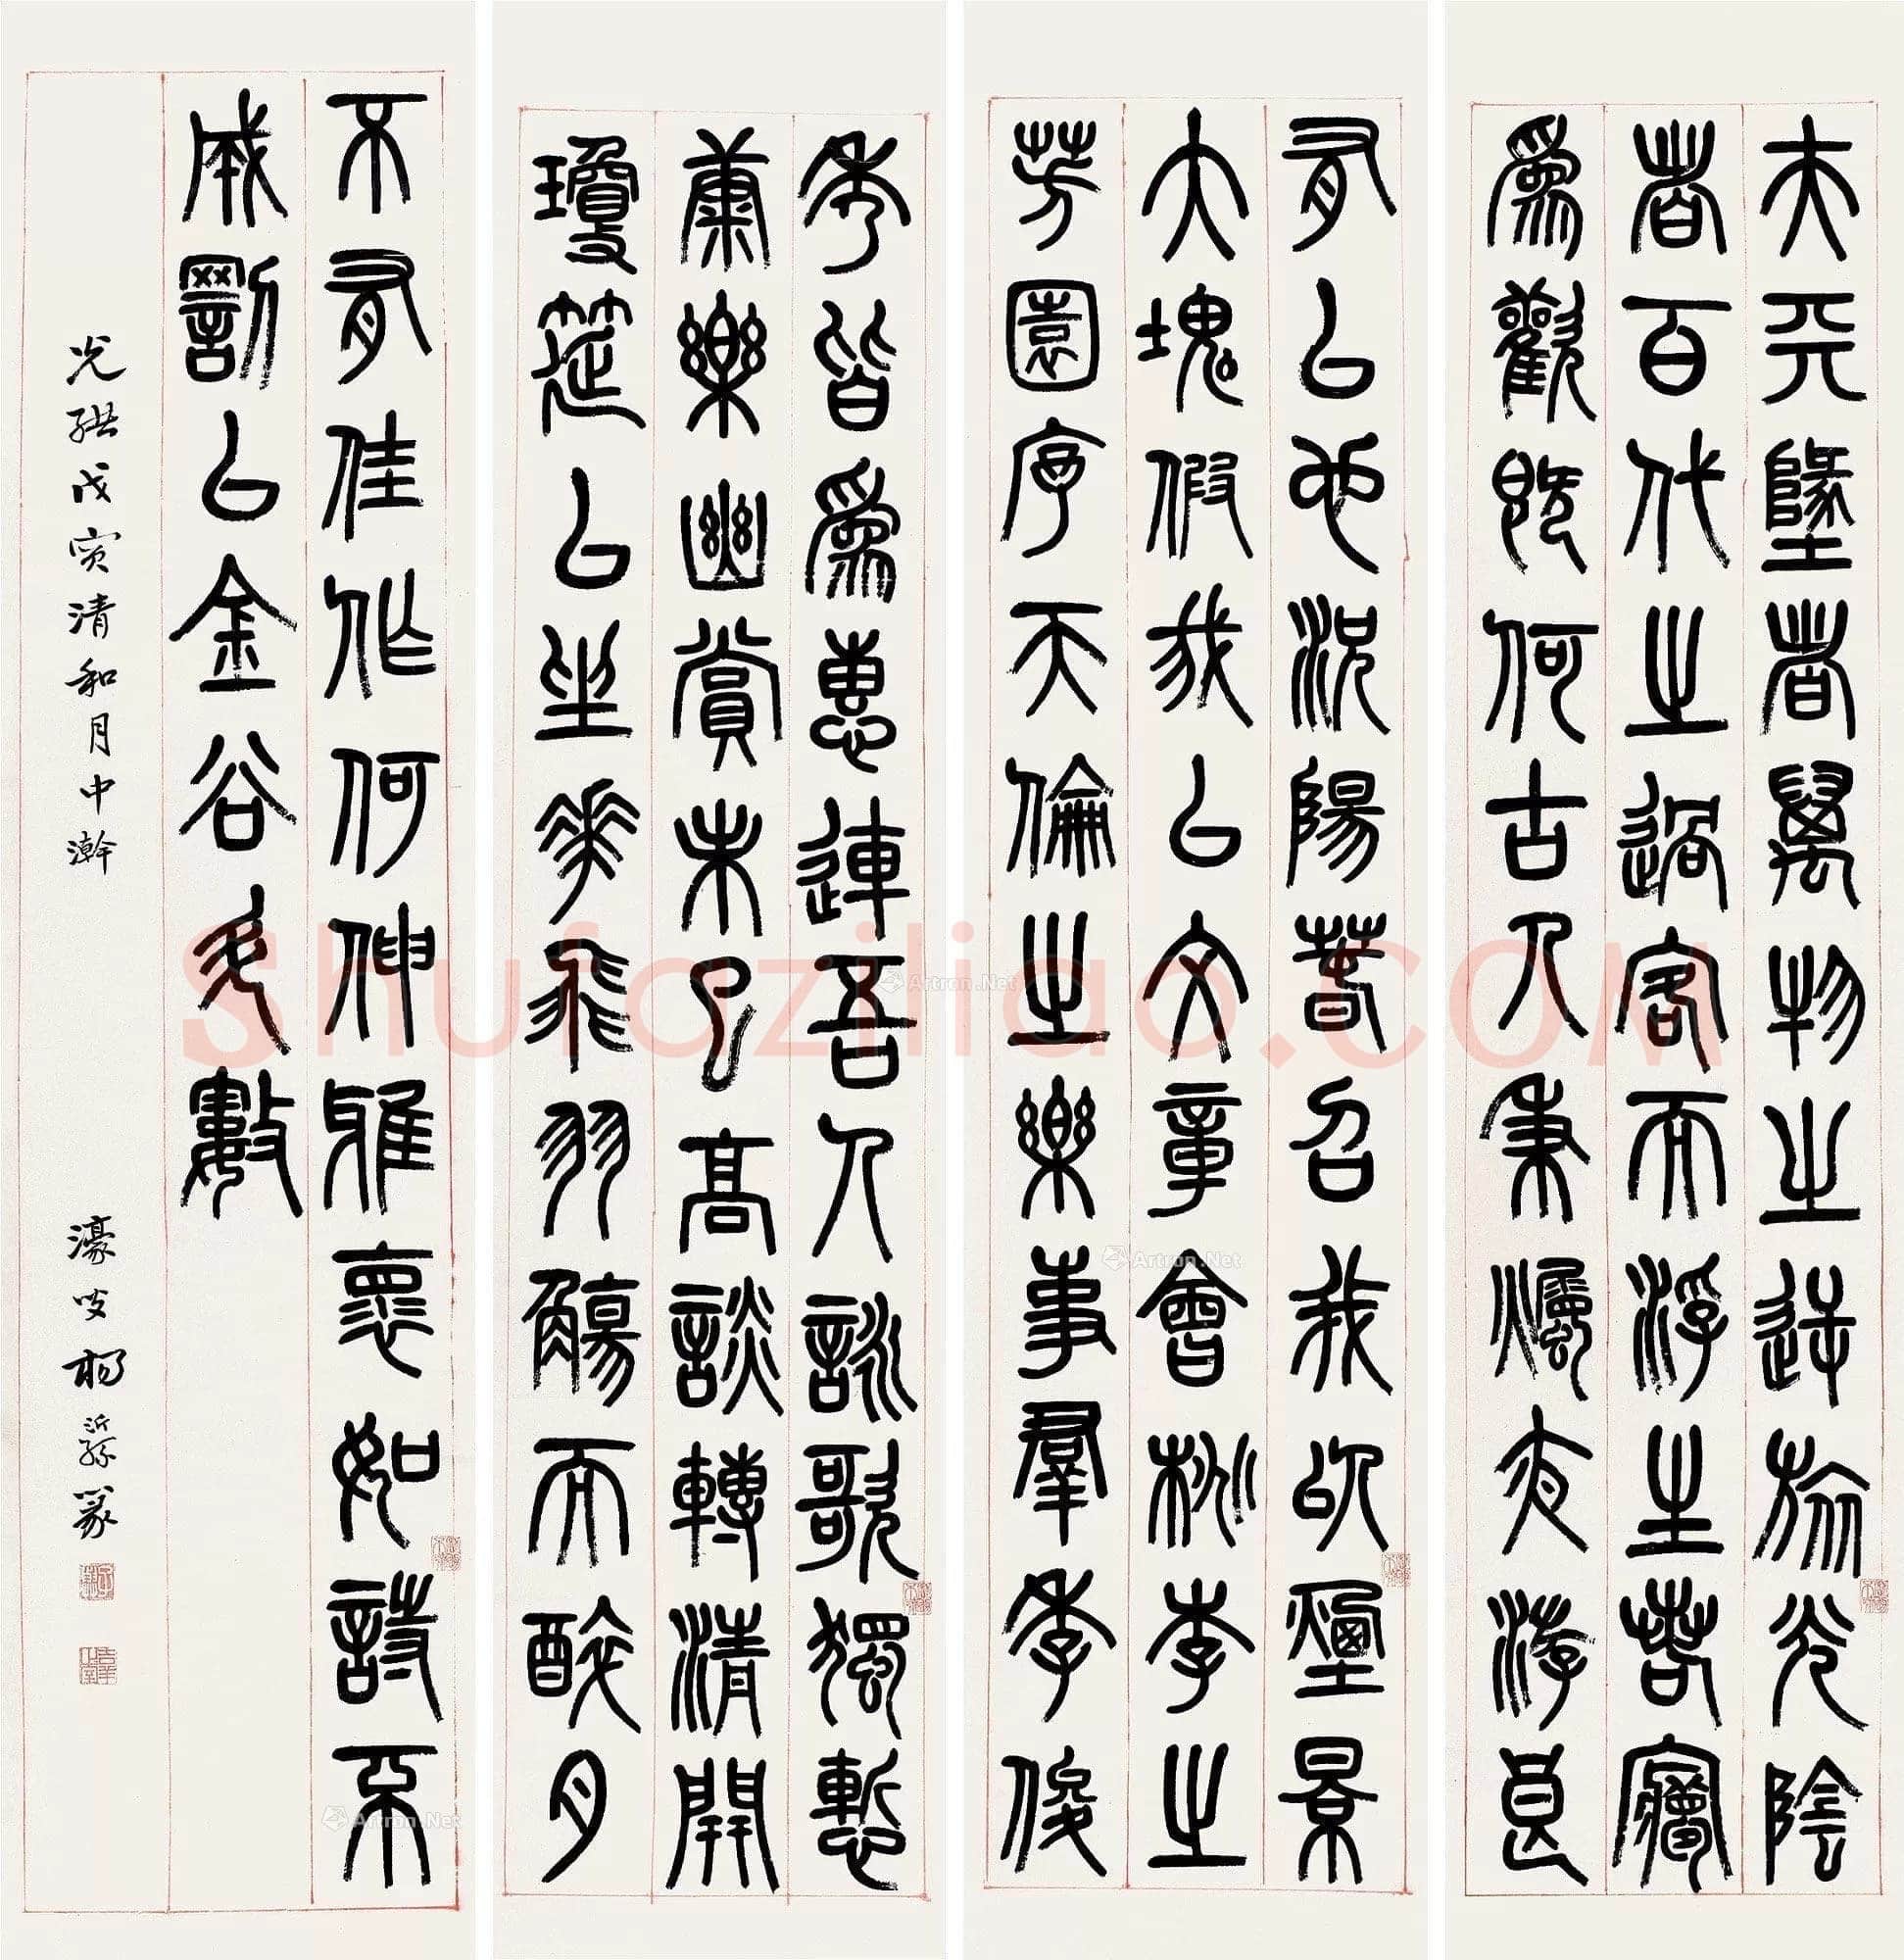 夫天墬者萬物之逆旅光陰
者百代之過客而浮生若㝱
為歡幾何古人秉燭夜游良
有以也況陽春召我以煙景
大塊假我以文章會桃李之
芳園序天倫之樂事羣季俊
秀皆為惠連吾人詠歌獨慙
康樂幽賞未已高談轉清開
瓊筵以坐華飛羽觴而醉月
不有佳作何伸雅懷如詩不
成罰以金谷多數
光緒戊寅清和月中澣 濠叟楊沂孫篆
Shufaziliao.com
Artron.Net
Artron.Net
Artron.Net